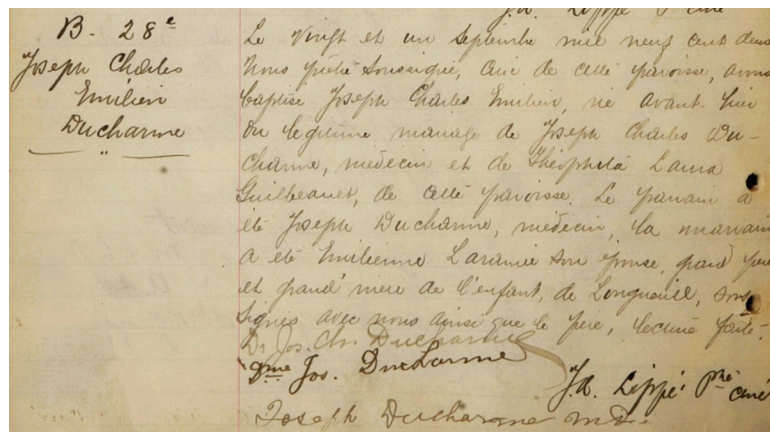 J.A. Lippé Ptre curé
B. 28e
Joseph Charles
Emilien
Ducharme
Le vingt et un Septembre mil neuf cent deux
Nous prêtre soussigné, curé de cette paroisse, avons
baptisé Joseph Charles Emilien, né avant-hier
du légitime mariage de Joseph Charles Du-
charme, médecin et de Théophila Laura
Guilbeault, de cette paroisse. Le parrain a
été Joseph Ducharme, médecin, la marraine
a été Emilienne Laramée son épouse, grand père
et grand'mère de l'enfant, de Longueuil, sous
signés avec nous ainsi que le père, lecture faite.
Dr Jos. Chs Ducharme
Dme Jos. Ducharme
J.A. Lippé Ptre curé
Joseph Ducharme m.D.